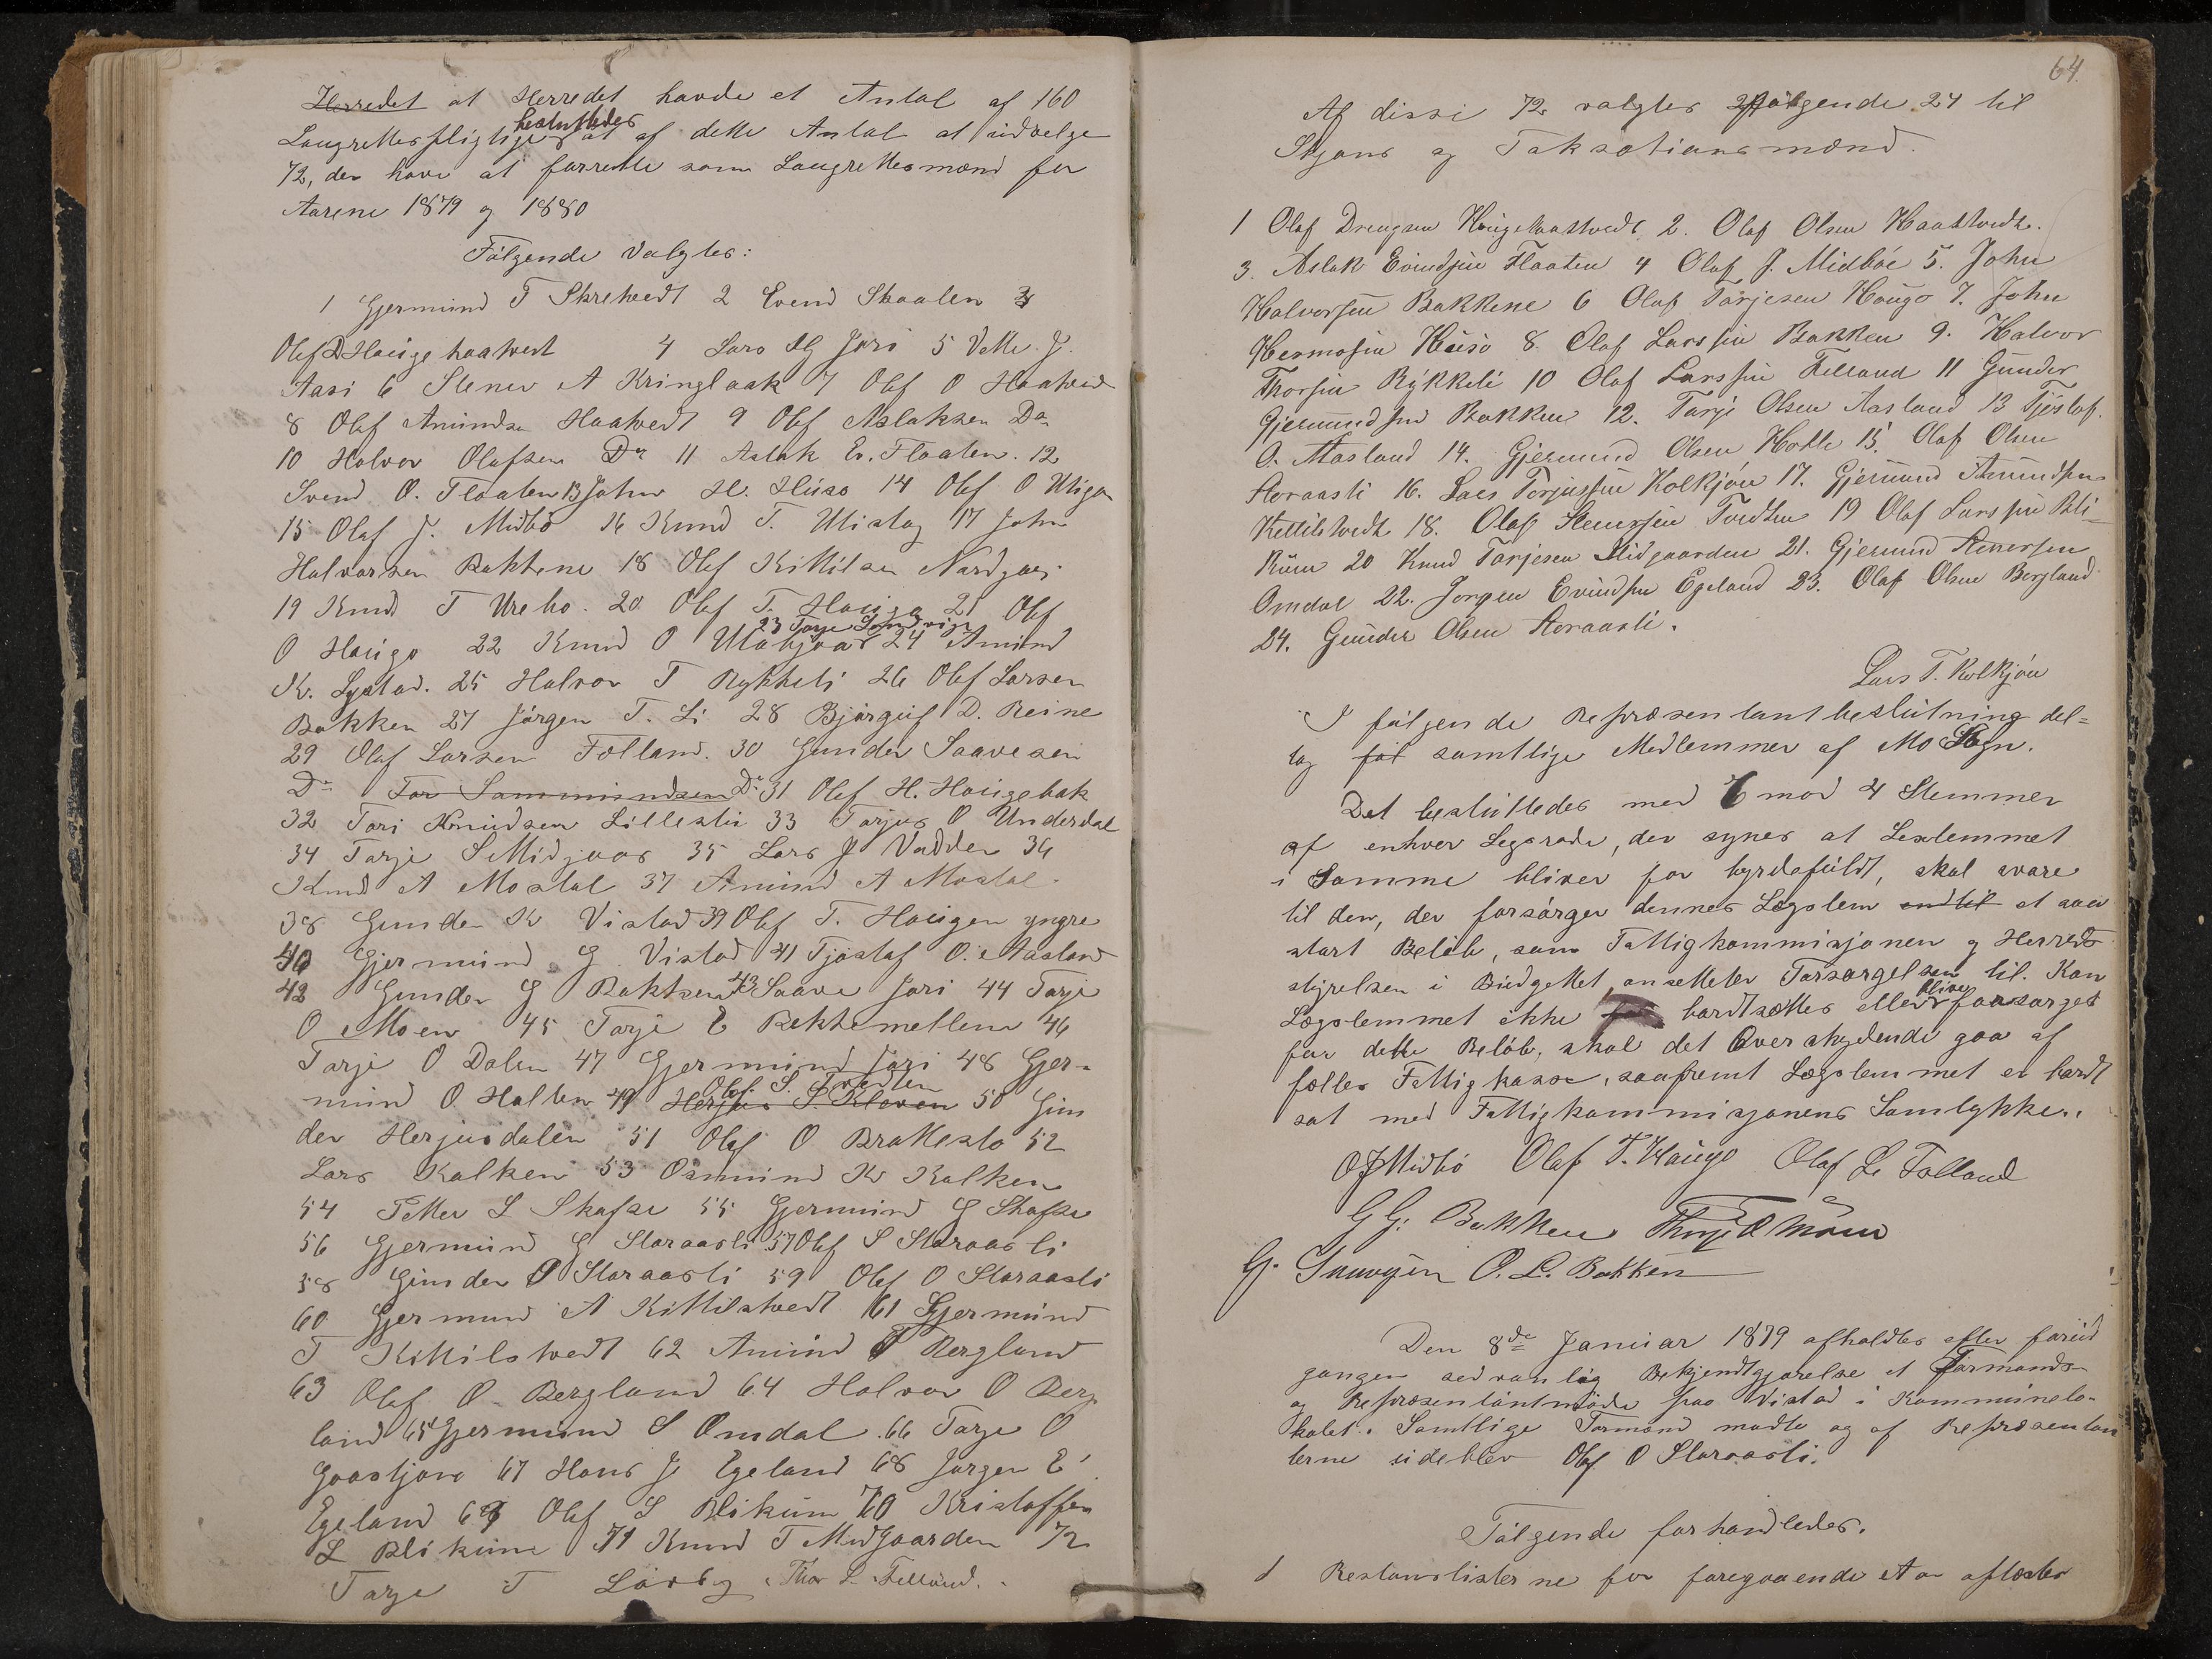 Herredet at Herredet havde et Antal af 160
beslutledes
Laugrettespligtige at af dette Antal at udvælge
72, der have at forrette som Laugrettesmænd for
Aarene 1879 og 1880
Følgende Valgtes:
1 Gjermund T Skretvedt 2 Svend Skaalen 3
Olef D Haugehaatvedt 4 Lars H Juri 5 Vetle J.
Aasi 6 Stener A Kringlaak 7 Olef O Haatved
8 Olef Amundsen Haatvedt 9 Olef Aslaksen Do
10 Halvor Olafsen Do 11 Aslak Ev. Flaaten. 12
Svend O. Flaaten 13 John H. Huso 14 Olef O Utigar
15 Olaf J. Midbø 16 Knud T. Utistog 17 John
Halvorsen Bakkene 18 Olef Kittilsen Nordgar
19 Knud T Urebo. 20 Olef T. Haugo 21 Olef
23 Tarje
O Haugo 22 Knud O 24 Amund
K. Lystad. 25 Halvor T Rykkeli 26 Olef Larsen
Bakken 27 Jørgen T. Li 28 Bjørguf D. Reine
29 Olaf Larsen Folland. 30 Gunder Saavesen
Do Tor Sammundsen Do 31 Olef H. Haugebak
32 Tori Knudsen Lillestu 33 Tarjus O Underdal
34 Tarje S Midgaar 35 Lars J Vadder 36
Knud A Mostal 37 Amund A Mostal
38 Gunder K Vistad 39 Olef T. Haugen yngre
40 Gjermund G. Vistad 41 Tjøstaf O. Aasland
42 Gunder G Bakken 43 Saave Jori 44 Tarje
O Moen 45 Tarje E Bekkemellem 46
Tarje O Dalen 47 Gjermund Jori 48 Gjer-
Olef. S. Tvedten
mund O. Holten 49 Herjus S. Kleven 50 Gun
der Herjusdalen 51 Olaf O Brattesto 52
Lars Kalken 53 Osmund K Kalken
54 Petter L Skafse 55 Gjermund G Skafse
56 Gjermund G Storaasli 57 Olef S Storaasli
58 Gunder O Storaasli 59 Olef O Storaasli
60 Gjermund A Kittilstvedt 61 Gjermund
T Kittilstvedt 62 Amund T Bergland
63 Olaf O. Bergland 64 Halvor O Berg
land 65 Gjermund S Omdal. 66 Tarje O
Gaastjøno 67 Hans J. Egeland 68 Jørgen E.
Egeland 69 Olef L Blikum 70 Kristoffer
L Blikum 71 Knud T Midgaarden 72
Tarje T Lørby Thor L. Felland.
64.
Af disse 72 valgtes følgende 24 til
Skjøns og Taksationsmænd.
1 Olaf Drengsen Haugehaatvedt 2. Olaf Olsen Haatvedt.
3. Aslak Evindsen Flaaten 4 Olaf J. Midbøe 5. John
Halvorsen Bakkene 6 Olaf Tarjesen Haugo 7. John
Hermosen Huso 8. Olaf Larssen Bakken 9. Halvor
Thorsen Rykkeli 10 Olaf Larssen Felland 11 Gunder
Gjermundsen Bakken 12. Tarje Olsen Aasland 13 Tjøstaf.
O. Aasland 14. Gjermund Olsen Holte 15. Olaf Olsen
Storaasli 16. Lars Torjussen Kolkjøn 17. Gjermund Amundsen
Kittilstvedt 18. Olaf Stenersen Tvedten 19 Olaf Larssen Bli=
kum 20 Knud Tarjesen Midgaarden 21. Gjermund Stenersen
Omdal 22. Jorgen Evindsen Egeland 23. Olaf Olsen Bergland
24. Gunder Olsen Storaasli.
Lars T. Kolkjøn
I følgende Repræsentantbeslutning del=
tog samtlige Medlemmer af Mo Sogn.
Det besluttedes med 6 mod 4 Stemmer
af enhver Legsrode, der synes at Leslemmet
i Samme bliver for byrdefuldt, skal svare
til den, der forsørger dennes Lægslem et saa
stort Beløb, som Fattigkommisjonen og Herreds
styrelsen i Budgettet ansætter Forsørgelsen til. Kan
blive
Lægslemmet ikke bortsættes eller forsørget
for dette Beløb, skal det Overskydende gaa af
fælles Fattigkasse, saafremt Lægslemmet er bort
sat med Fattigkommisjonens Samtykke.
O J Midbø Olaf T. Haugo Olaf L. Folland
G G. Bakken
G. O. L. Bakken
Den 8de Januar 1879 afholdtes efter forud
gangen sedvanlig Bekjendtgjørelse et Formands-
og Repræsentantmøde paa Vistad i Kommunelo-
kalet. Samtlige Formænd mødte og af Repræsentan
terne udeblev Olef O Storaasli.
Følgende forhandledes.
1 Restanslisterne for foregaaende Aar oplæstes